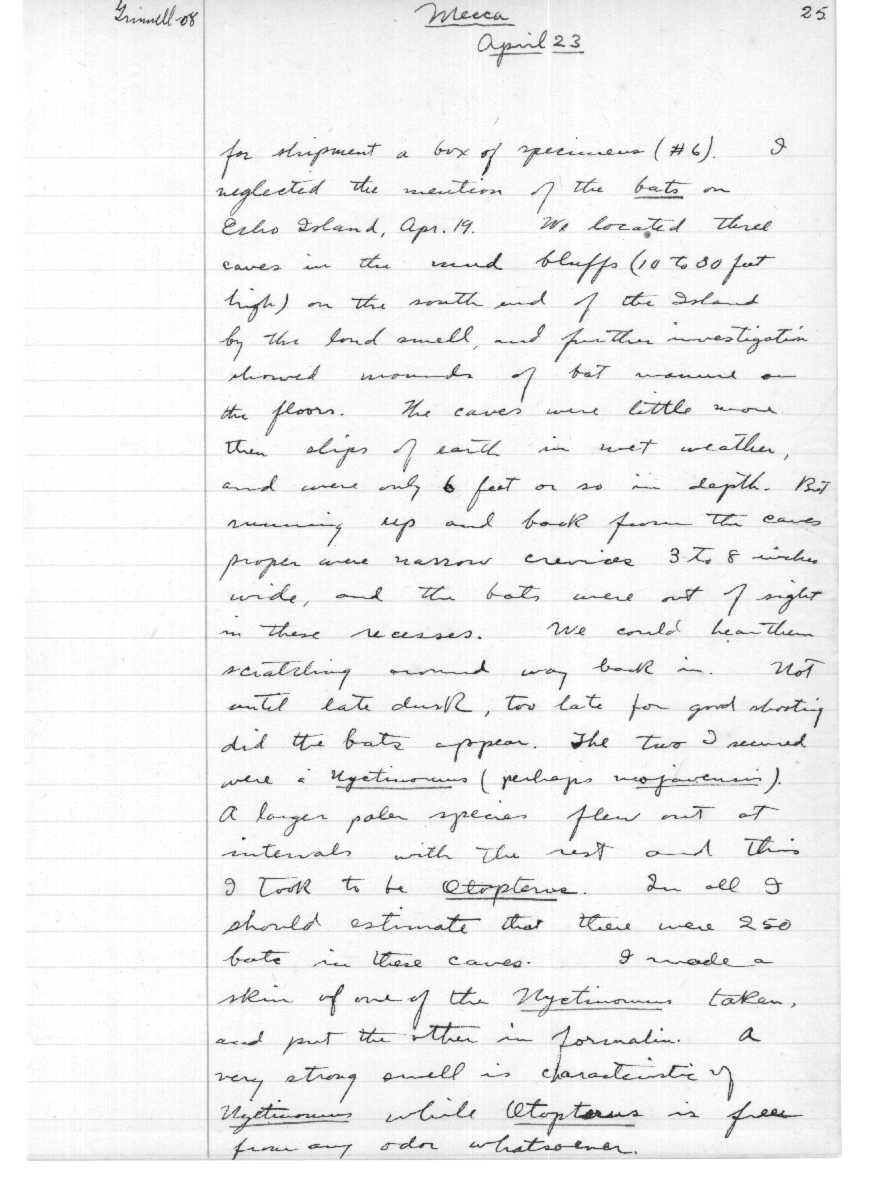 Grinnell-08
Mecca
25
April 23
for shipment a box of specimens (#6). I
neglected the mention of the bats on
Echo Island, Apr. 19. We located three
caves in the mud bluffs (10 to 30 feet
high) on the south end of the Island
by the loud smell, and further investigation
showed mounds of bat manure on
the floors. The caves were little more
then slips of earth in wet weather,
and were only 6 feet or so in depth. But
running up and back from the caves
proper were narrow crevices 3 to 8 inches
wide, and the bats were out of sight
in these recesses. We could hear them
scratching around way back in. Not
until late dusk, too late for good shooting
did the bats appear. The two I secured
were a Nyctinomus (perhaps mojavensis).
A larger paler species flew out at
intervals with the rest and this
I took to be Otopterus. In all I
should estimate that there were 250
bats in these caves. I made a
skin of one of the Nyctinomus taken,
and put the other in formalin. A
very strong smell is characteristic of
Nyctinomus while Otopterus is free
from any odor whatsoever.